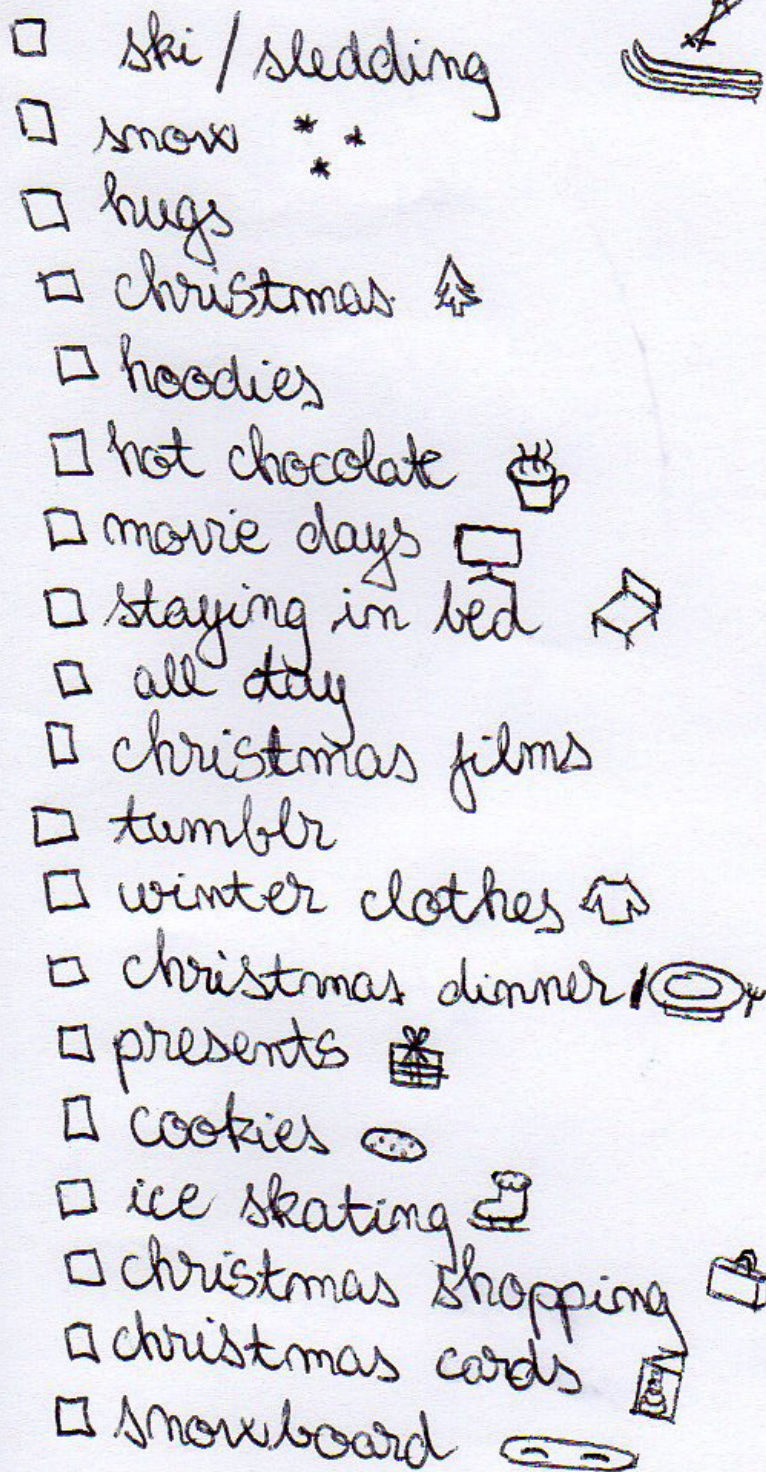 ski / sledding
snow
hugs
christmas
hoodies
hot chocolate
movie days
staying in bed
all day
christmas films
tumblr
winter clothes
christmas dinner
presents
cookies
ice skating
christmas shopping
christmas cards
snowboard